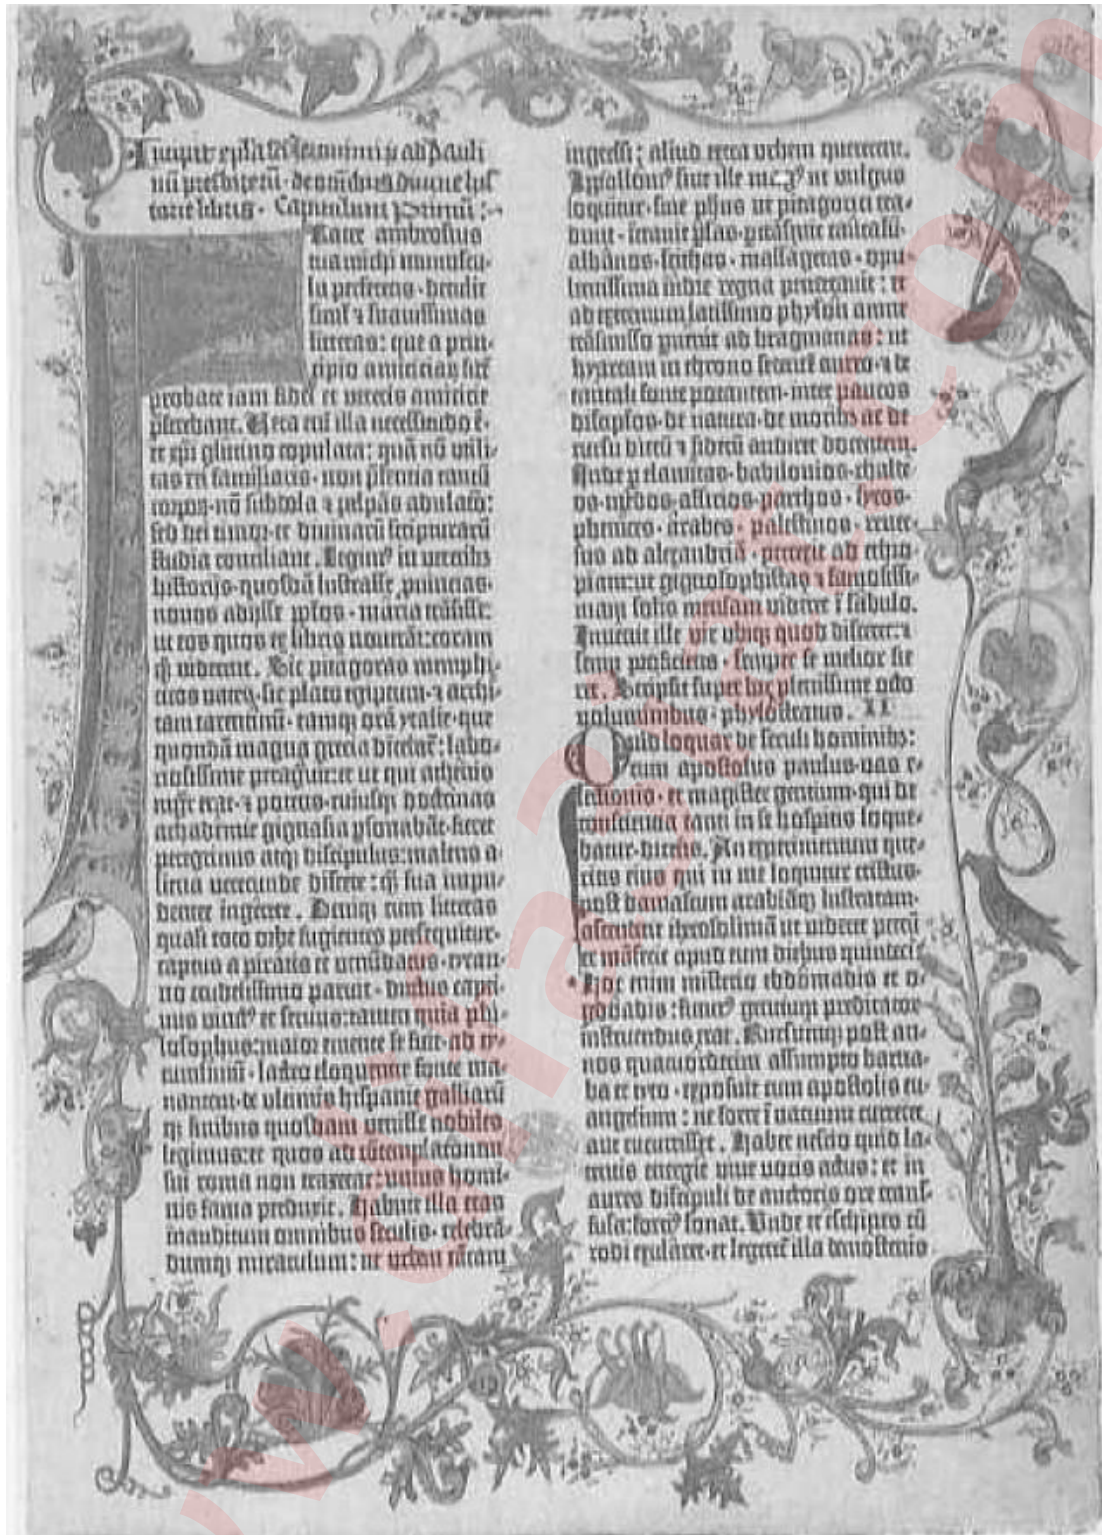 Incipit epistola sancti iheronimi ad paulinum
presbiterum de omnibus divine historie
libris · Capitulum primum
Frater ambrosius
tua michi munuscula
perferens · detulit
simul et suavissimas
litteras: que a principio
amiciciarum
probate iam fidei et veteris amicicie
preferebant. Vera enim illa necessitudo ē·
et xpi glutino copulata: quā nō utilitas
rei familiaris · non presencia tantū
corporū · nō subdola et palpās adulatio:
sed dei timor · et divinarū scripturarū
studia conciliant. Legimus in veteribus
historiis · quosdā lustrasse provincias ·
novos adisse populos · maria trāsisse:
ut eos quos ex libris noverāt: coram
quoque viderent. Sic pitagoras memphiticos
vates · sic plato egiptum · et architam
tarentinū · eamque orā ytalie · que
quondā magna grecia dicebatur: laboriosissime
peragravit: et ut qui athenis
magister erat · et potens · cuiusque doctrinas
achademie gignasia personabāt · fieret
peregrinus atque discipulus: malens aliena
verecunde discere: quam sua impudenter
ingerere. Denique cum litteras
quasi toto orbe fugientes persequitur ·
captus a piratis et venundatus · tyranno
crudelissimo paruit · ductus captivus
vinctus et servus: tamen quia philosophus:
maior emente se fuit · ad tytumlivium
· lacteo eloquentie fonte manantem
· de ultimis hispanie galliarūque
finibus quosdam venisse nobiles
legimus: et quos ad contemplationem
sui roma non traxerat: unius hominis
fama perduxit. Habuit illa etas
inauditum omnibus seculis · celebrandumque
miraculum: ut urbem tantam
ingressi: aliud extra urbem quererent.
Apollonius sive ille magus ut vulgus
loquitur · sive philosophus ut pitagorici tradunt
· intravit persas · pertransivit caucasū ·
albanos · scithas · massagetas · opulentissima
indie regna penetravit: et
ad extremum latissimo physon amne
transmisso pervenit ad bragmanas: ut
hyarcam in throno sedentē aureo · et de
tantali fonte potantem · inter paucos
discipulos · de natura · de moribus ac de
cursu dierū et siderū audiret docentem.
Inde per elamitas · babilonios · chaldeos
· medos · assirios · parthos · syros ·
phenices · arabes · palestinos · reversus
ad alexandriā · perrexit ad ethiopiam:
ut gignosophistas et famosissimam
solis mensam videret ī sabulo.
Invenit ille vir ubique quod disceret: et
semper proficiens · semper se melior fieret.
Scripsit super hoc plenissime octo
voluminibus · phylostratus. II
Quid loquar de seculi hominibus:
cum apostolus paulus · vas electionis
· et magister gentium · qui de
consciencia tanti in se hospitis loquebatur
· dicens. An experimentum queritis
eius qui in me loquitur cristus ·
post damascum arabiāque lustratam ·
ascenderit iherosolimā ut videret petrū
et māserit apud eum diebus quindecim
Hoc enim misterio ebdomadis et ogdoadis:
futurus gentium predicator
instruendus erat. Rursumque post annos
quatuordecim assumpto barnaba
et tyto · exposuit cum apostolis euangelium:
ne forte ī vacuum curreret
aut cucurrisset. Habet nescio quid latentis
energie vive vocis actus: et in
aures discipuli de auctoris ore transfusa:
fortius sonat. Unde et eschines cū
rodi exularet · et legeretur illa demostenis